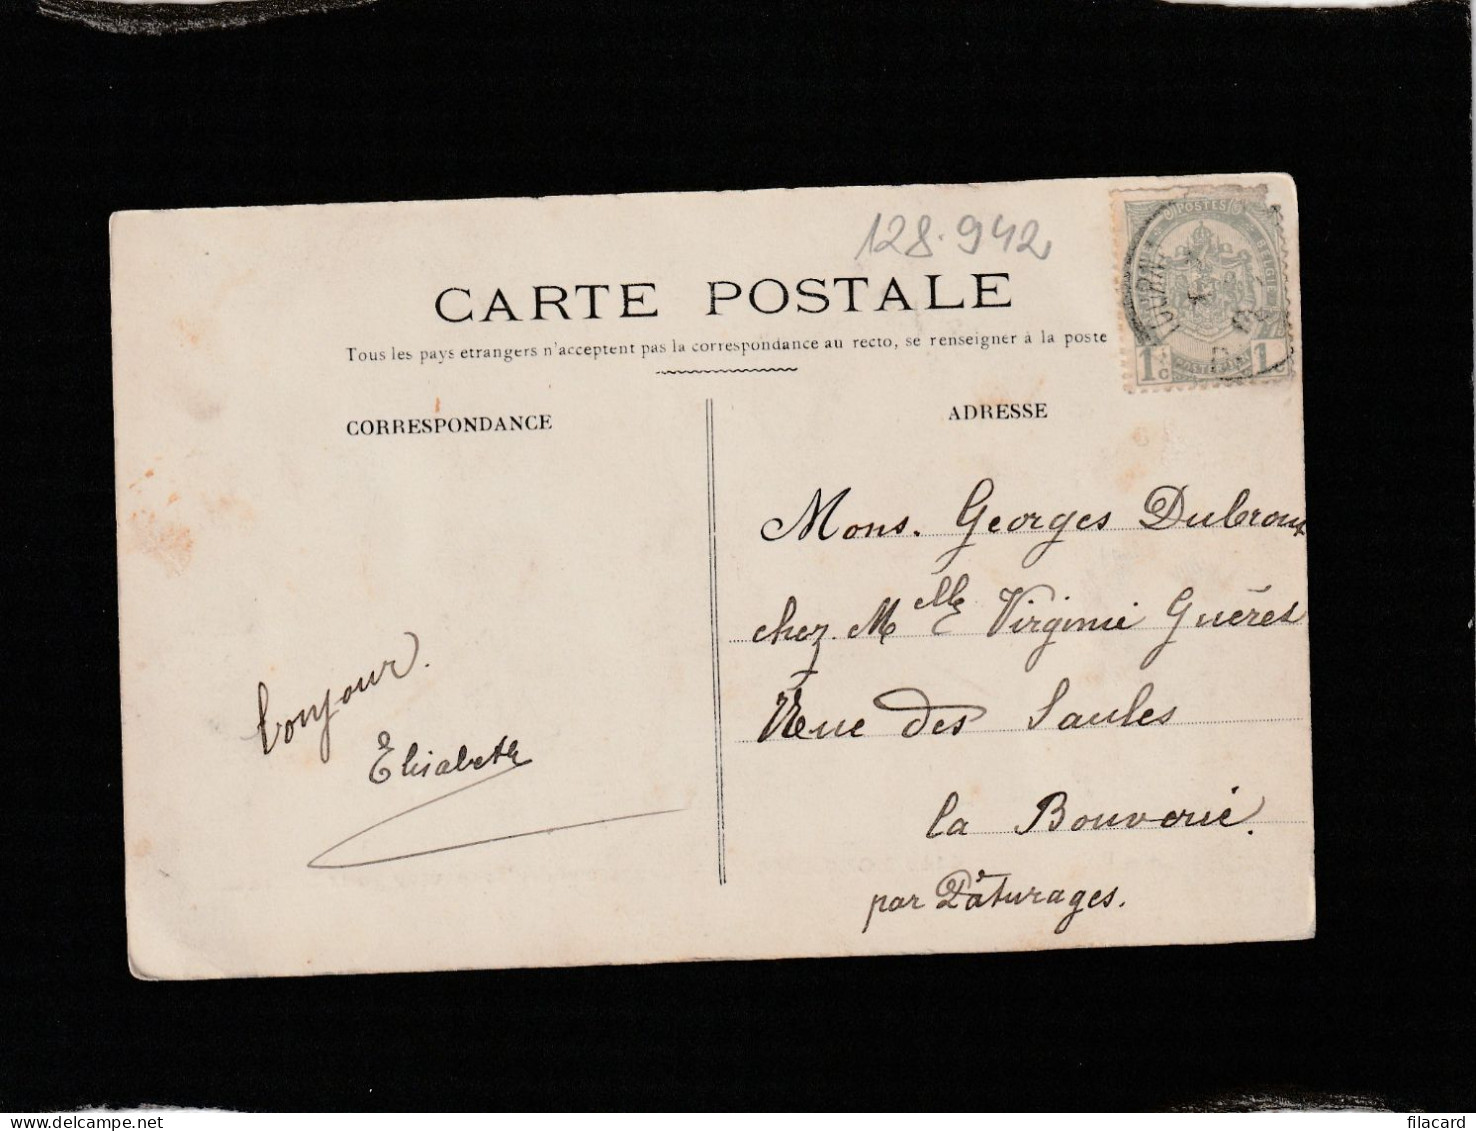 128.942
CARTE POSTALE
Tous les pays etrangers n'acceptent pas la correspondance au recto, se renseigner à la poste
POSTES
BELGI
TOURNAI
1 c 1 c
CORRESPONDANCE
ADRESSE
bonjour.
Elisabeth
Mons. Georges
chez Melle Virginie Guéret
Rue des Saules
la Bouverie.
par Pâturages.
www.delcampe.net
filacard